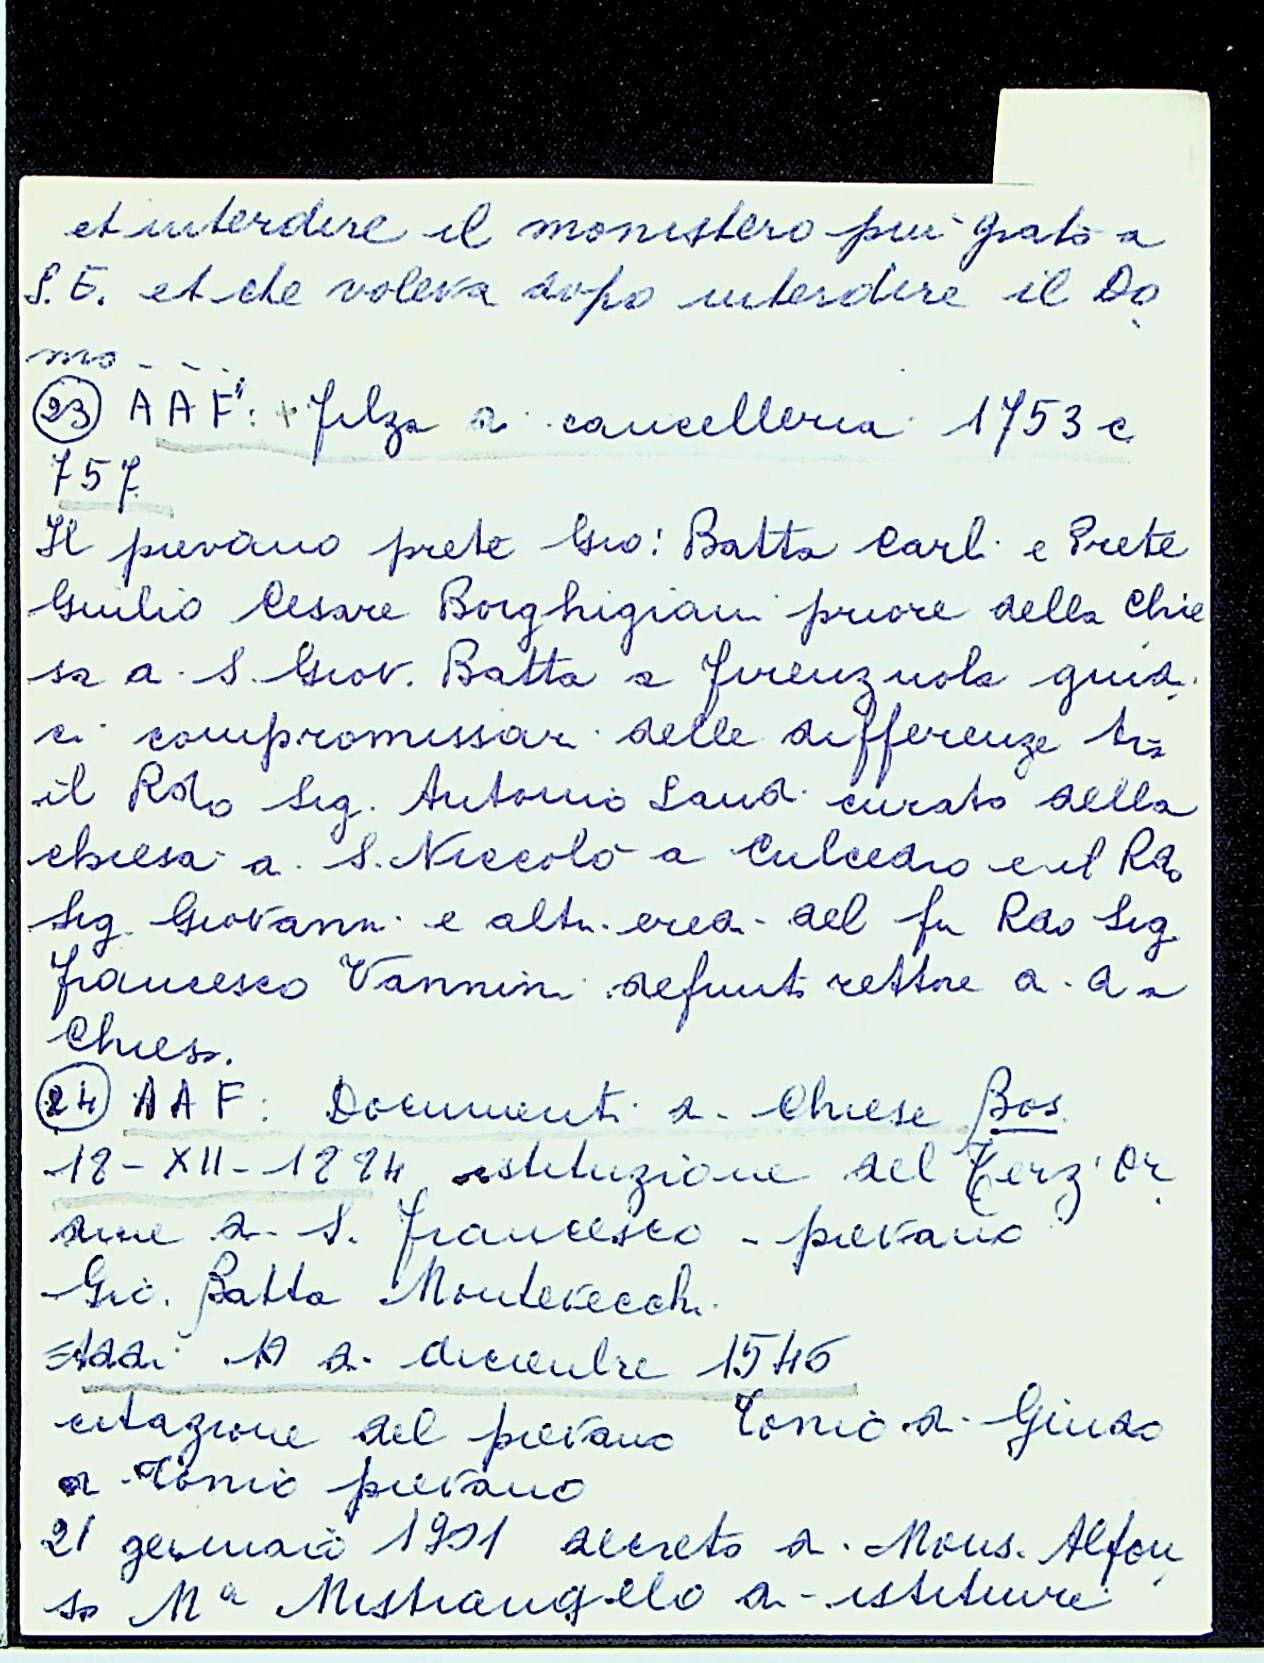 et interdire il monistero piu grato a
S. E. et che voleva dopo interdire il Do
mo ....
(23) AAF: + filza di cancelleria 1753 c
757
Il pievano prete Gio: Batta Carli e Prete
Giulio Cesare Borghigiani priore della Chie
sa di S. Giov. Batta a firenzuola giudi
ci compromissari delle differenze tra
il Rdo Sig. Antonio Landi curato della
chiesa di S. Niccolò a Culcedro e il Rdo
Sig. Giovanni e altri eredi del fu Rdo Sig
Francesco Vannini defunto rettore di da
Chiesa.
(24) AAF: Documenti di Chiese Bos.
istituzione del Terz'Or
dine di S. Francesco - pievano
Gio. Batta Montevecchi.
Addi di dicembre 1546
citazione del pievano Tonio di Guido
di Tonio pievano
21 gennaio decreto di Mons. Alfon
so Mª Mistrangelo di istituire